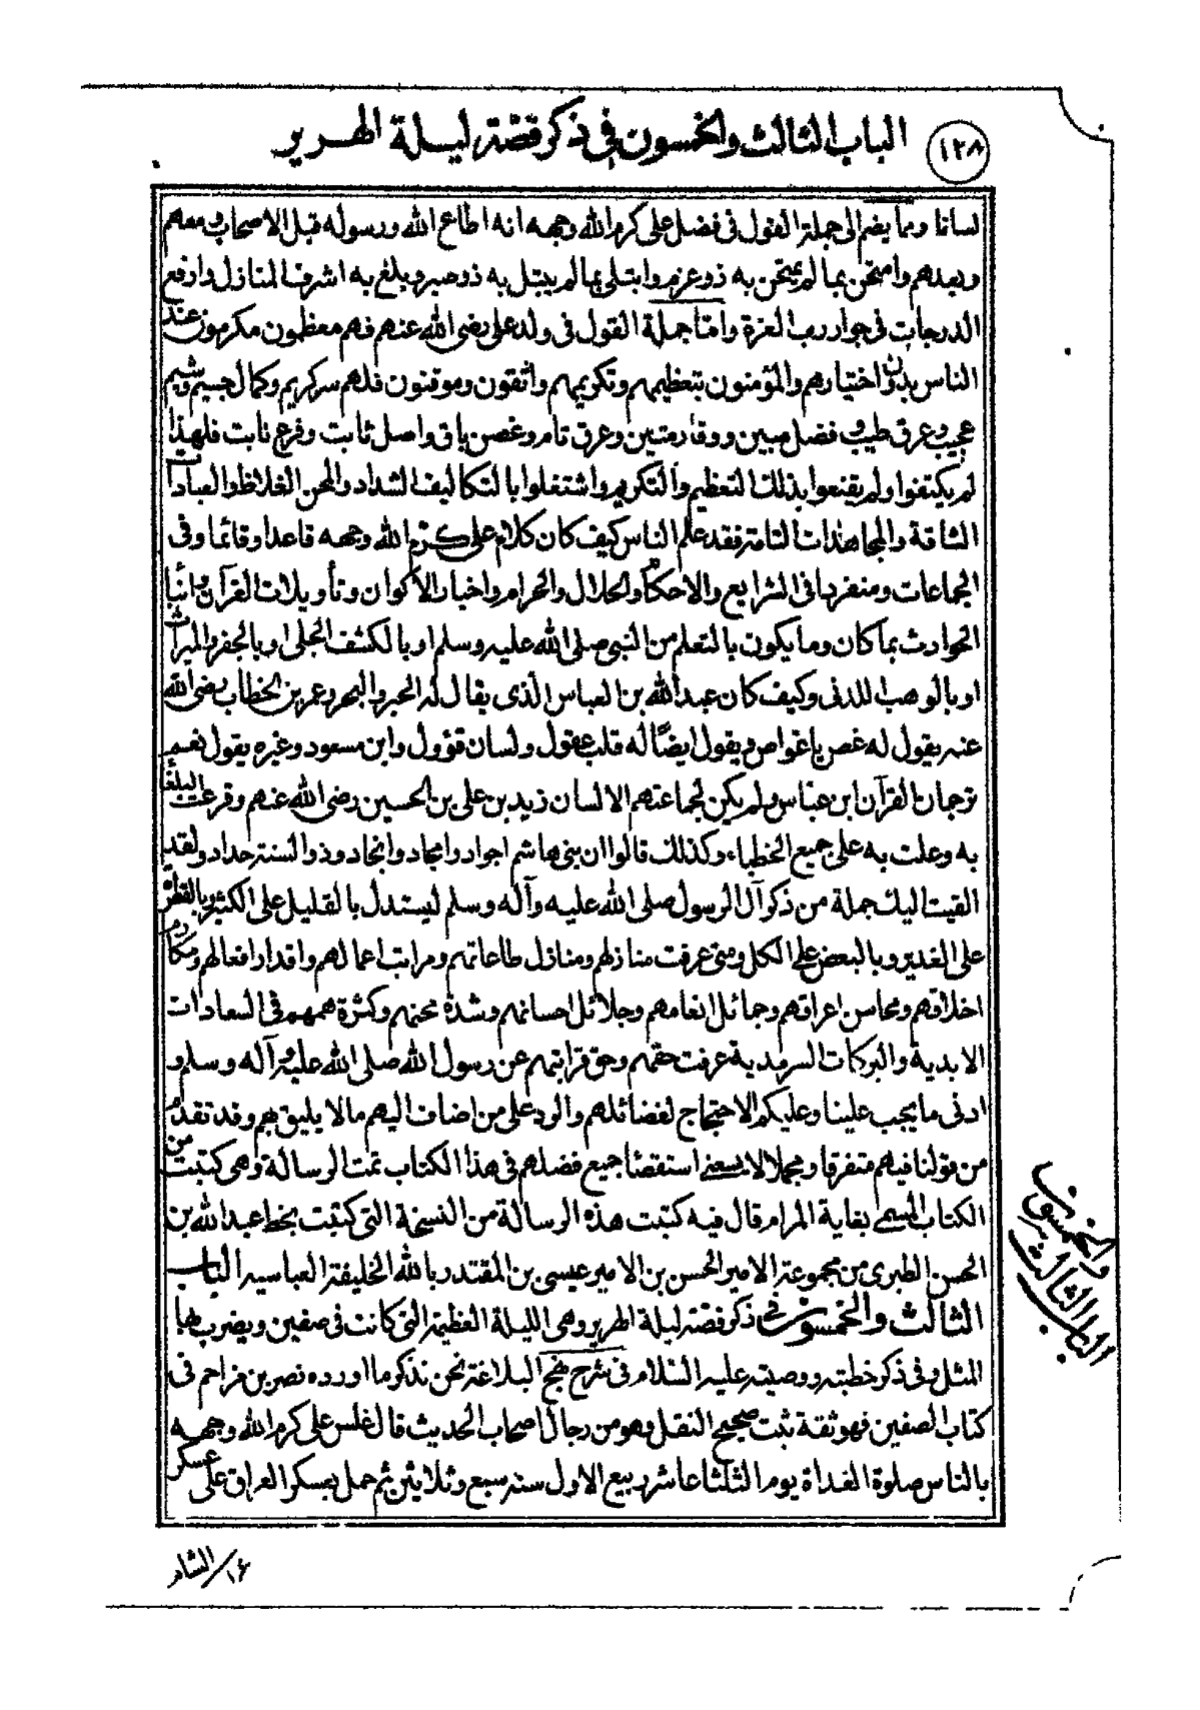 ١٢٨
الباب الثالث والخمسون فى ذكر قصّة ليلة الهرير
لسانا ومما يضم الى جملة القول فى فضل على كرم الله وجهه انه اطاع الله ورسوله قبل الاصحاب ومعهم
وبعدهم وامتحن بما لم يمتحن به ذو عزم وابتلى بما لم يبتل به ذو صبر وبلغ به اشرف المنازل وارفع
الدرجات فى جوار رب العزة وامّا جملة القول فى ولد على رضى الله عنهم فهم معظمون مكرمون عند
الناس بدون اختيارهم والمؤمنون بتعظيمهم وتكريمهم واثقون وموقنون فلهم سر كريم وكمال جسيم وشيم
عجيب وعرق طيب وفضل مبين ووقار متين وعرق تام وغصن باق واصل ثابت وفرع نابت فلهذا
لم يكتفوا ولم يقنعوا بذلك التعظيم والتكريم واشتغلوا بالتكاليف الشداد والمحن الغلاظ والعبادات
الشاقة والمجاهدات التامة فقد علم الناس كيف كان كلام على كرّم الله وجهه قاعدا وقائما وفى
الجماعات ومنفردا فى الشرايع والاحكام والحلال والحرام واخبار الاكوان وتأويلات القرآن وانبا
الحوادث بما كان وما يكون بالتعلم من النبى صلى الله عليه وسلم او بالكشف الجلى او بالجفر والميراث
او بالوهب اللدنى وكيف كان عبد الله بن العباس الذى يقال له الحبر والبحر وعمر بن الخطاب رضى الله
عنه يقول له غص يا غواص ويقول ايضًا له قلب عقول ولسان قؤول وابن مسعود وغيره يقول نعم
ترجمان القرآن ابن عبّاس ولم يكن لجماعتهم الا لسان زيد بن على بن الحسين رضى الله عنهم وقرعت البلغا
به وعلت به على جميع الخطباء وكذلك قالوا ان بنى هاشم اجواد وامجاد وانجاد وذو السنة حداد ولقد
القيت اليك جملة من ذكر آل الرسول صلى الله عليه وآله وسلم ليستدل بالقليل على الكثير وبالقطرة
على الغدير وبالبعض على الكل ومتى عرفت منازلهم ومنازل طاعاتهم ومراتب اعمالهم واقدار افعالهم ومكارم
اخلاقهم ومحاسن اعراقهم وجمائل انعامهم وجلائل احسانهم وشدة محنهم وكثرة هممهم فى السعادات
الابدية والبركات السرمدية عرفت حقهم وحق قرابتهم عن رسول الله صلى الله عليه وآله وسلم و
ادنى ما يجب علينا وعليكم الاحتجاج لفضائلهم والرد على من اضاف اليهم ما لا يليق بهم وقد تقدم
من قولنا فيهم متفرقا ومجملا لا يسعنى استقصا جميع فضلهم فى هذا الكتاب تمت الرسالة وهى كتبت من
الكتاب المسمى بغاية المرام قال فيه كتبت هذه الرسالة من النسخة التى كتبت بخط عبد الله بن
الحسن الطبرى من مجموعة الامير الحسن بن الامير عيسى بن المقتدر بالله الخليفة العباسية الباب
الثالث والخمسون فى ذكر قصّة ليلة الهرير وهى الليلة العظيمة التى كانت فى صفين ويضرب بها
المثل وفى ذكر خطبته ووصيته عليه السّلام فى شرح نهج البلاغة نحن نذكر ما اورده نصر بن مزاحم فى
كتاب الصفين فهو ثقة ثبت صحيح النقل وهو من رجال اصحاب الحديث قال غلس على كرم الله وجهه
بالناس صلوة الغداة يوم الثلثا عاشر ربيع الاول سنة سبع وثلاثين ثم حمل بعسكر العراق على عسكر
الباب الثالث والخمسون
الشام